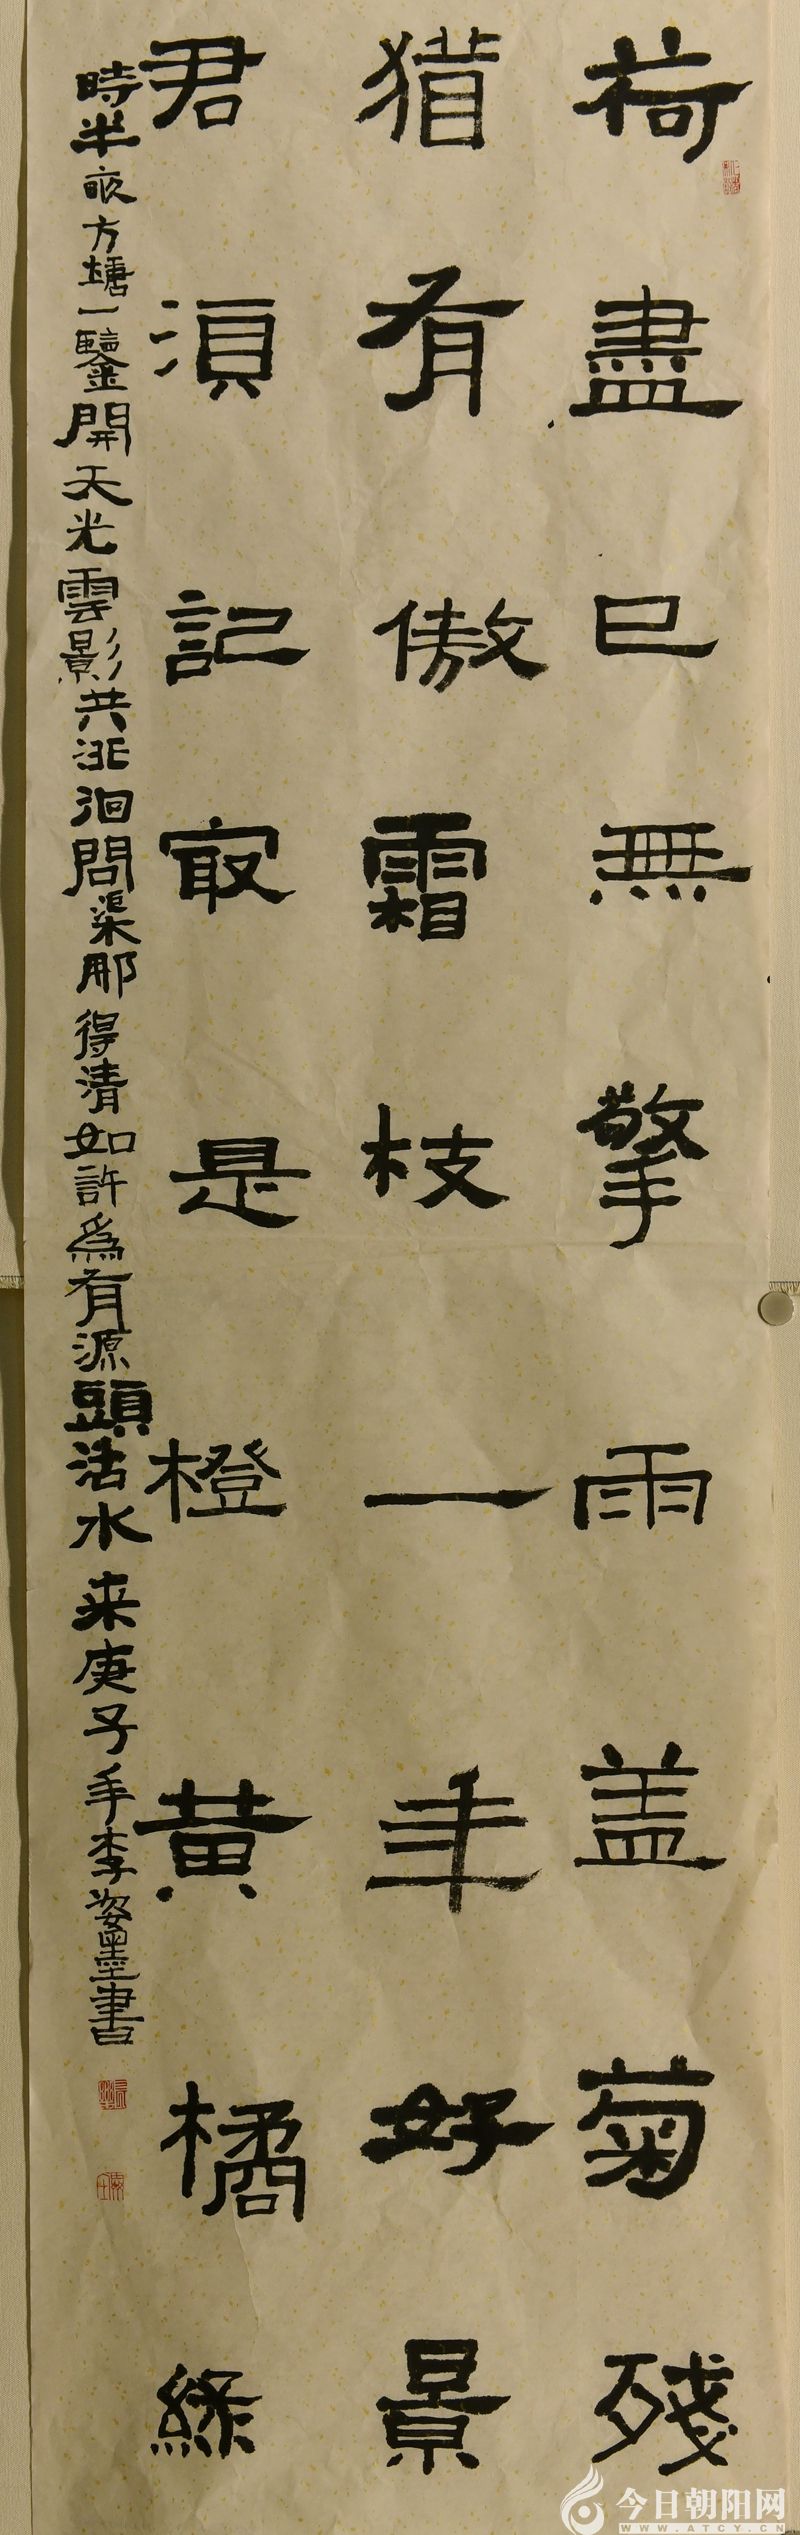 荷盡已無擎雨盖菊殘
猶有傲霜枝一年好景
君須記最是橙黄橘綠
時半畝方塘一鑒開天光雲影共徘徊問渠那得清如許為有源頭活水来庚子年李姿墨書
今日朝阳网
WWW.ATCY.CN